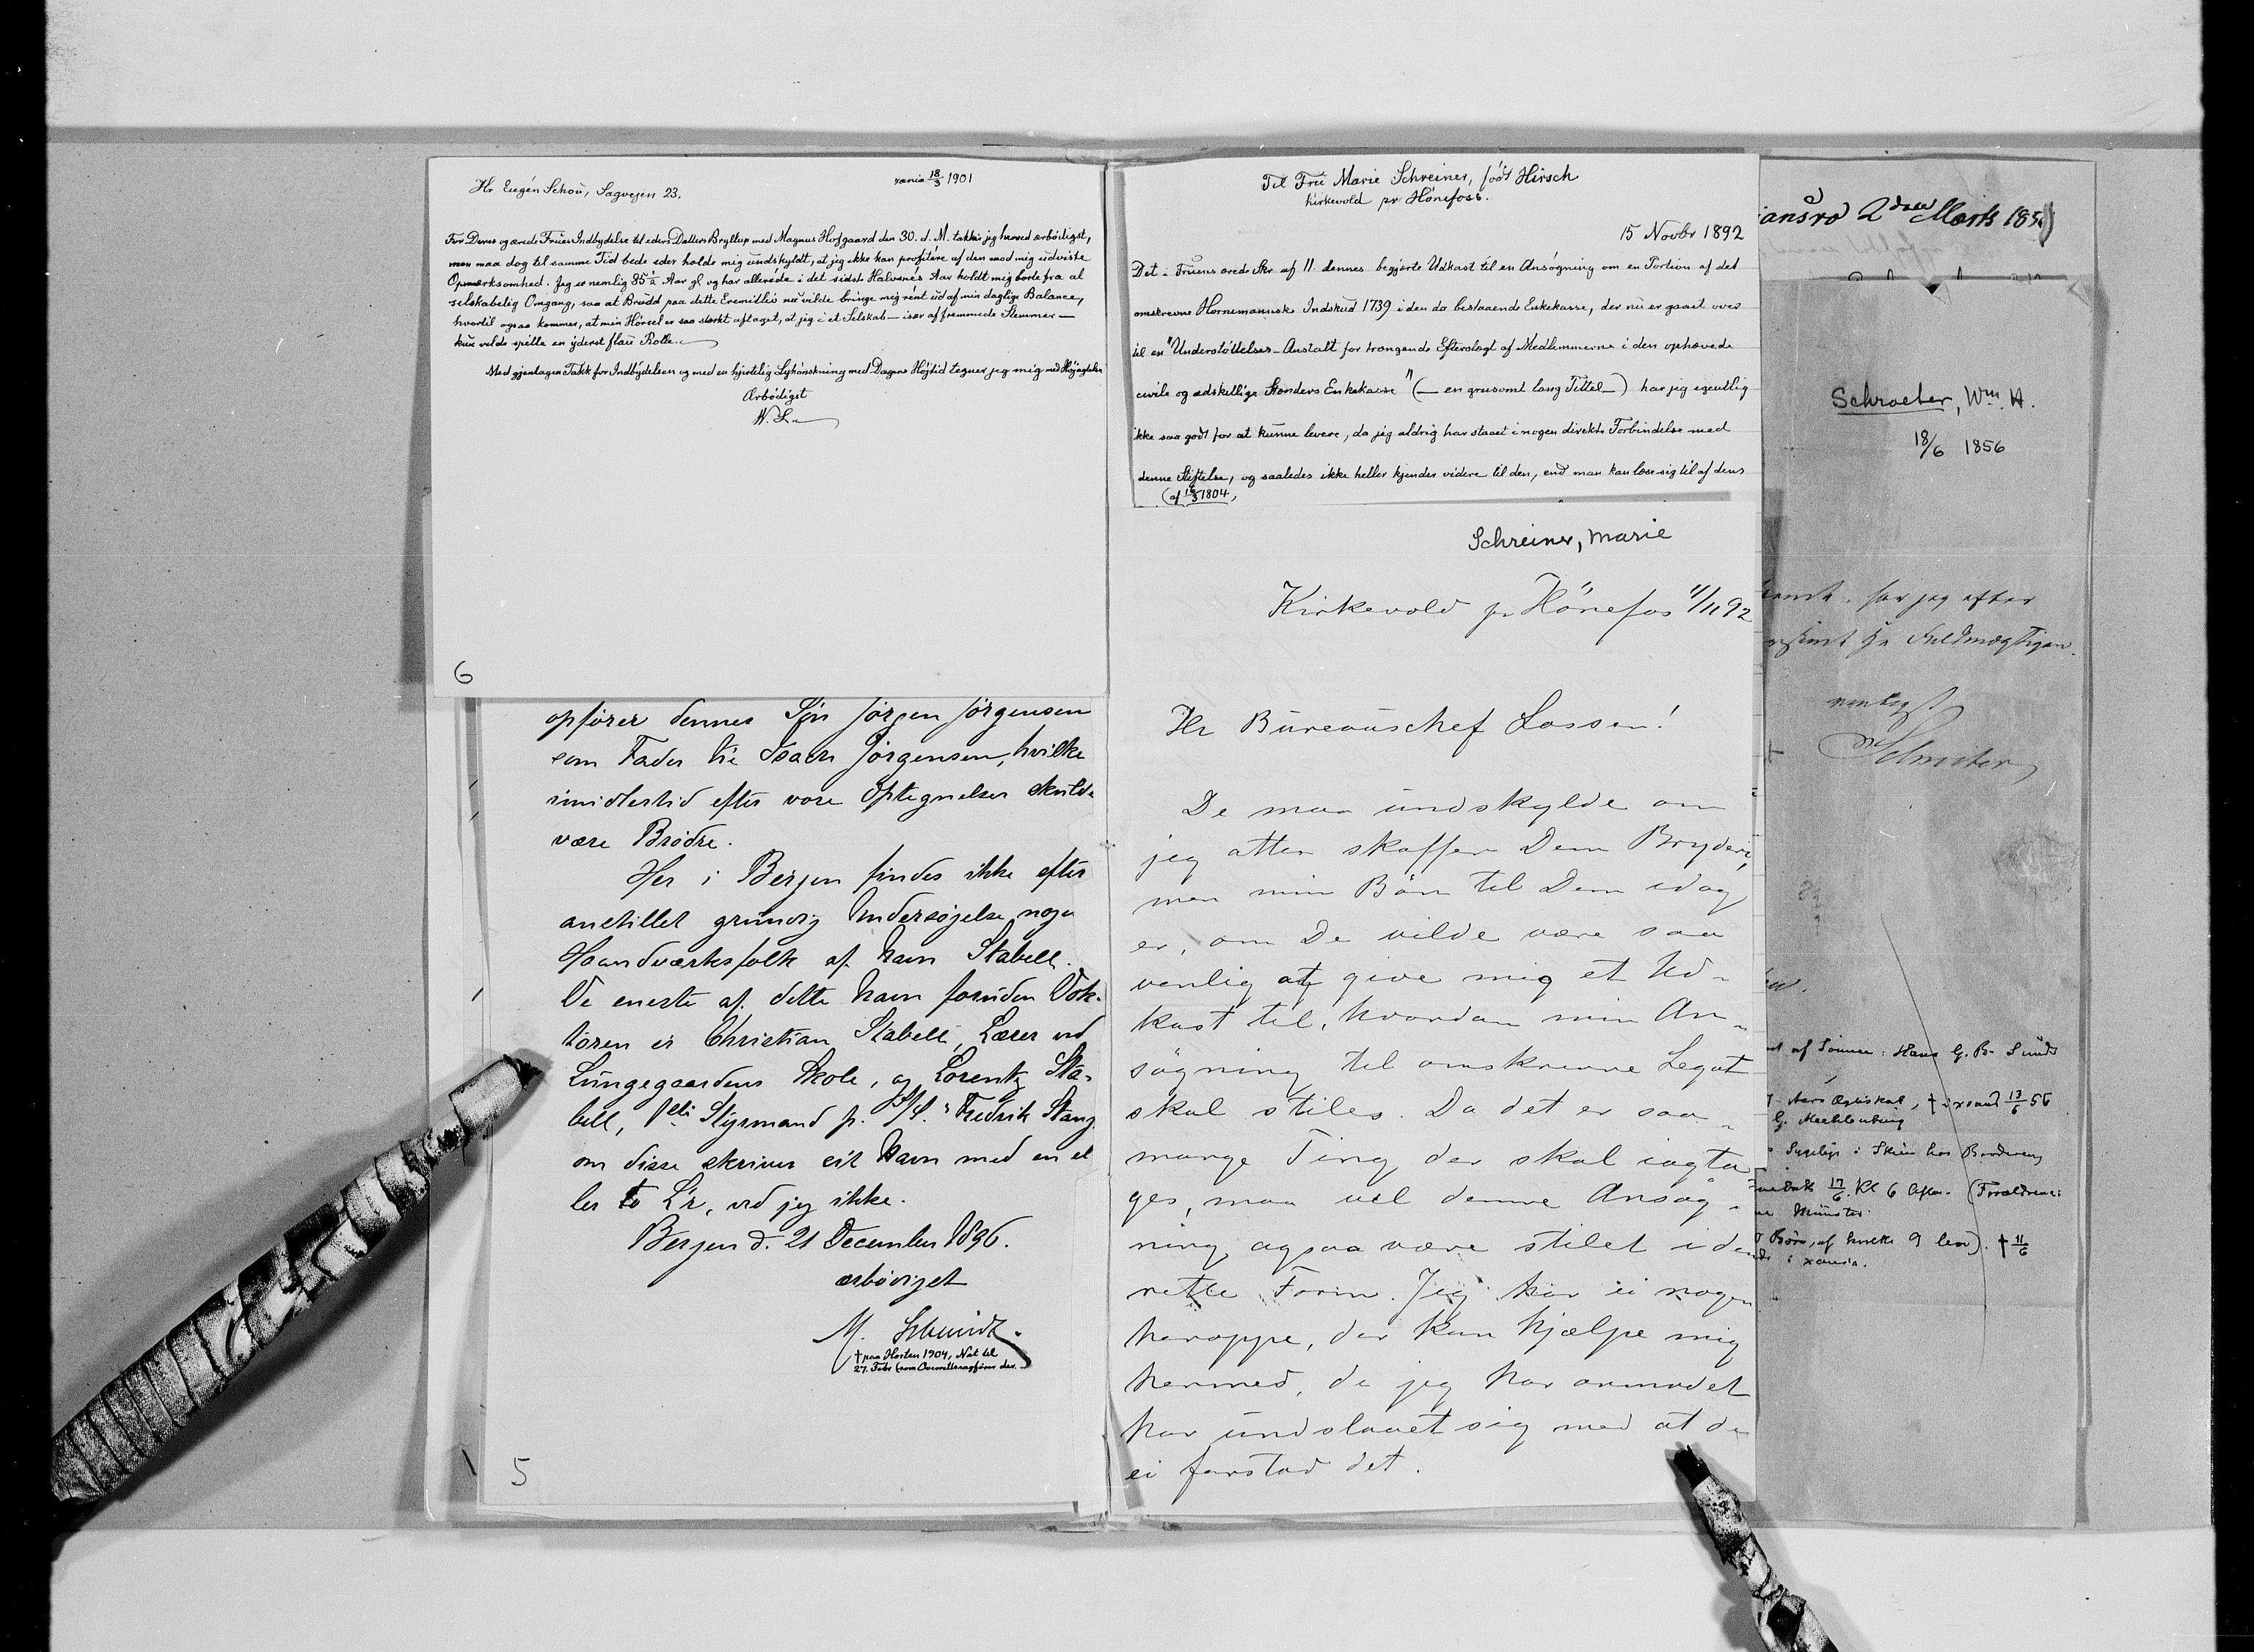 Hr Eugén Schou, Sagvejen 23.
xania 18/3 1901
For Deres og ærede Frues Indbydelse til eders Datters Bryllup med Magnus Hofgaard den 30. d. M. takker jeg herved ærbødigst,
men maa dog til samme Tid bede eder holde mig undskyldt, at jeg ikke kan profitére af den mod mig udviste
Opmærksomhed. Jeg er nemlig 85½ Aar gl. og har alleréde i det sidste Halvsnés Aar holdt mig borte fra al
selskabelig Omgang, saa at Brudd paa dette Eremitliv nu vilde bringe mig rént ud af min daglige Balance,
hvortil ogsaa kommer, at min Hörsel er saa stærkt aftaget, at jeg i et Selskab — især af fremmede Stemmer —
kun vilde spille en yderst flau Rolle.
Med gjentagen Takk for Indbydelsen og med en hjertelig Lykönskning med Dagens Højtid tegner jeg mig med Højagtelse
Ærbödigst
W. L.
6
opfører dennes Søn Jørgen Jørgensen
som Fader til Isach Jørgensen, hvilke
imidlertid efter vore Optegnelser skulde
være Brødre.
Her i Bergen findes ikke efter
anstillet grundig Undersøgelse nogen
Haandværksfolk af Navn Stabell.
De eneste af dette Navn foruden Dok-
toren er Christian Stabell, Lærer ved
Lungegaardens Skole, og Lorentz Sta-
bell, 1ste Styrmand p. S/S. "Fredrik Stang
om disse skriver sit Navn med en el
ler to L'r, ved jeg ikke.
Bergen d. 21 December 1896.
ærbødigst
M. Schmidt.
† paa Høsten 1904, Nat til
27. Febr (som Overretssagfører der.
5
Til Frue Marie Schreiner, födt Hirsch
Kirkevold pr Hönefoss.
15 Novbr 1892
Det i Fruens ærede Skr. af 11. dennes begjærte Udkast til en Ansøgning om en Portion af det
omskrevne Hornemannske Indskud 1739 i den da bestaaende Enkekasse, der nu er gaaet over
til en "Understöttelses-Anstalt for trængende Efterslægt af Medlemmerne i den ophævede
civile og adskillige Stænders Enkekasse" (— en grusomt lang Tittel —) har jeg egentlig
ikke saa godt for at kunne levere, da jeg aldrig har staaet i nogen direkte Forbindelse med
denne Stiftelse, og saaledes ikke heller kjender videre til den, end man kan læse sig til af dens
(af 1804,
Schreiner, Marie
Kirkevold pr Hönefos 11/11 92
Hr Bureauschef Lassen!
De maa undskylde om
jeg atter skaffer Dem Bryderi,
men min Bön til Dem idag
er, om De vilde være saa
venlig at give mig et Ud-
kast til, hvordan min An-
sögning til omskrevne Legat
skal stiles. Da det er saa
mange Ting, der skal iagtta
ges, maa vel denne Ansög-
ning ogsaa være stilet i den
rette Form. Jeg har ei nogen
heroppe, der kan hjælpe mig
hermed, de jeg har anmodet
har undslaaet sig med at de
ei forstod det.
2den Marts
Schroeter, Wm. H.
18/6 1856
har jeg efter
Fuldmægtigen.
venligst
Schröter
af Sönner: Hans G. B. Sundt
Aars Ægteskab, † i xsand 13/6 56
G. Mecklenburg
i Skien hos Broderen
17/6. Kl 6 Aften. (Forældrene:
Münster
Börn, af hvilke 9 lever). † 11/6
i xania.